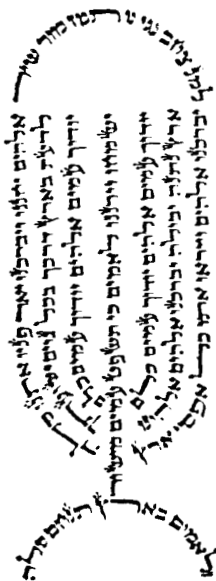 למנצח בנגינת מזמור שיר
אלהים יחננו ויברכנו יאר פניו אתנו סלה
לדעת בארץ דרכך בכל גוים ישועתך
יודוך עמים אלהים יודוך עמים כלם
ישמחו וירננו לאמים כי תשפט עמים מישור
ולאמים בארץ תנחם סלה
יודוך עמים אלהים יודוך עמים כלם
ארץ נתנה יבולה יברכנו אלהים אלהינו
יברכנו אלהים וייראו אתו כל אפסי ארץ